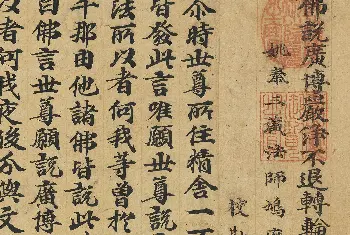 佛說廣博嚴淨不退轉輪
姚秦三藏法師鳩
尒時世尊所住精舍一
皆發此言唯願世尊說
法所以者何我等曾於
千那由他諸佛皆說此
白佛言世尊願說廣博
以者何我夜後分與文